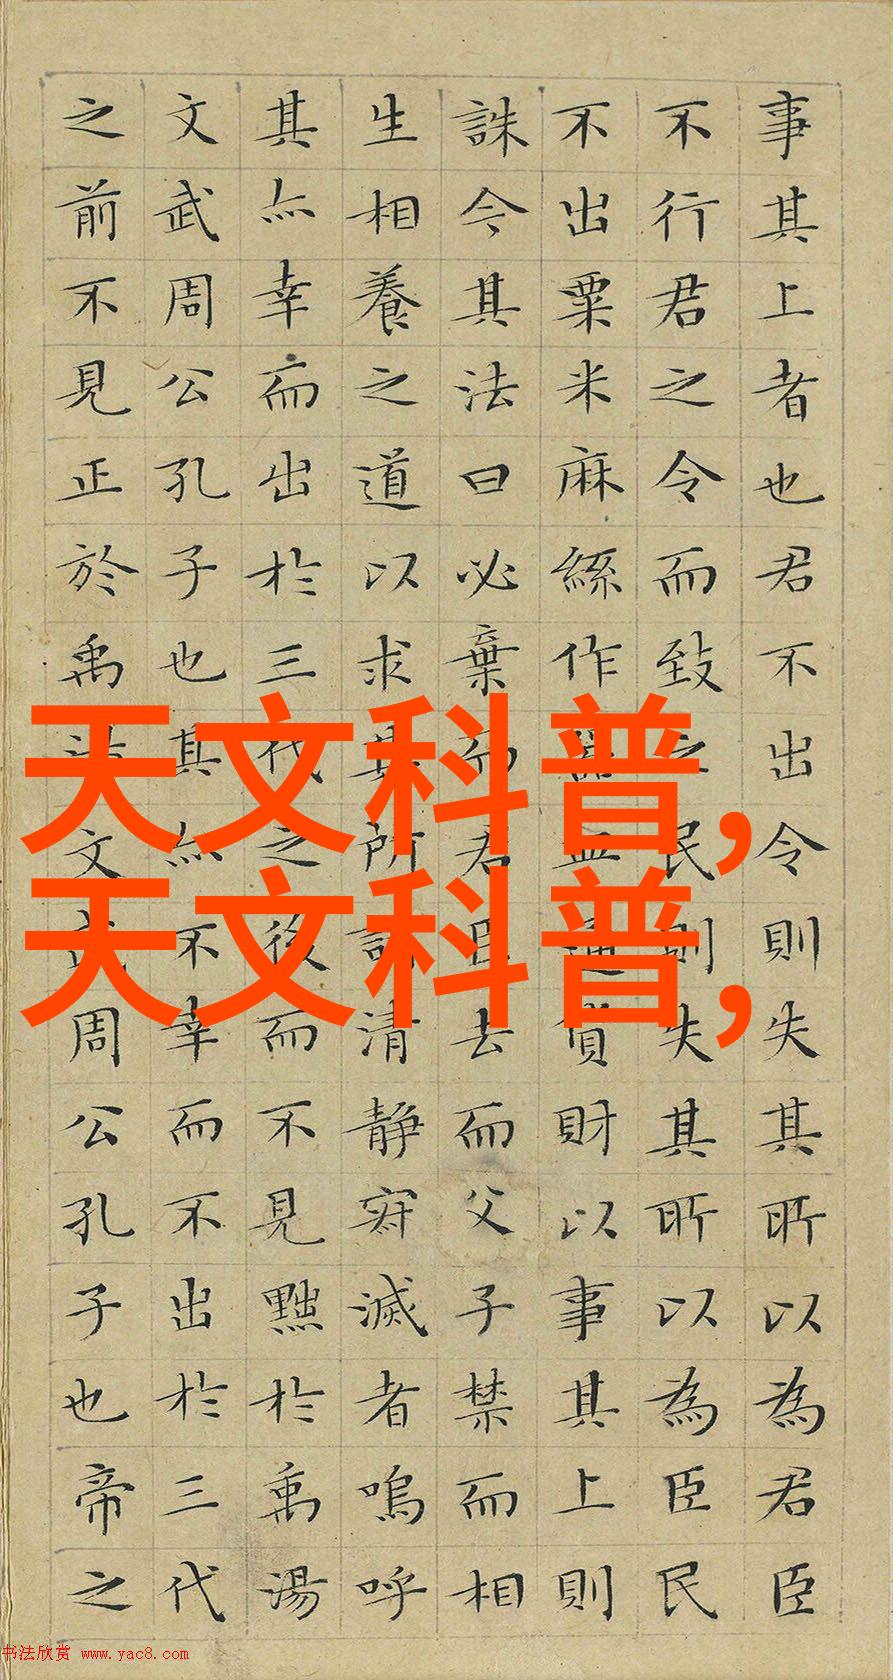 事其上者也君不出令則失其所以為君臣
不行君之令而致之民則失其所以為臣民
不出粟米麻絲作器皿通貨財以事其上則
誅今其法曰必棄而君臣去而父子禁而相
生相養之道以求其所謂清靜寂滅者嗚呼
其亦幸而出於三代之後而不見黜於禹湯
文武周公孔子也其亦不幸而不出於三代
之前不見正於禹湯文武周公孔子也帝之
天文科普,
天文科普,
书法欣赏 www.yac8.com